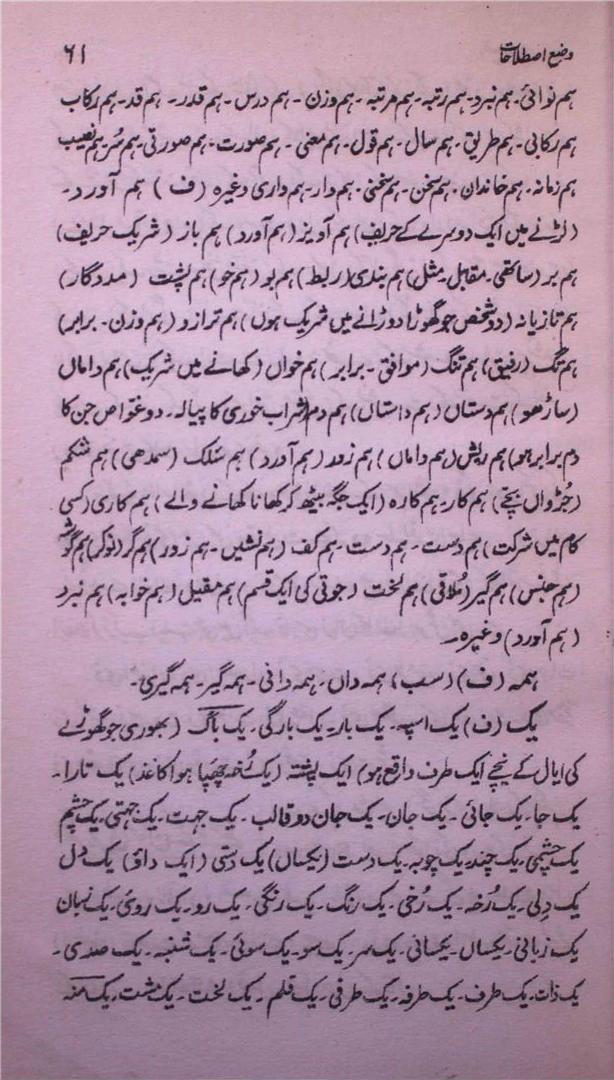 وضع اصطلاحات ۶۱
ہم نوائی۔ ہم نبرد۔ ہم رتبہ۔ ہم مرتبہ۔ ہم وزن۔ ہم درس۔ ہم قدر۔ ہم قد۔ ہم رکاب
ہم رکابی۔ ہم طریق۔ ہم سال۔ ہم قول۔ ہم معنی۔ ہم صورت۔ ہم صورتی۔ ہم سُر۔ ہم نصیب
ہم زمانہ۔ ہم خاندان۔ ہم سخن۔ ہم سخنی۔ ہم دار۔ ہم داری وغیرہ (ف) ہم آورد۔
(لڑنے میں ایک دوسرے کے حریف) ہم آویز (ہم آورد) ہم باز (شریک حریف)
ہم بر (ساتھی۔ مقابل۔ مثل) ہم بندی (ربط) ہم بو (ہم خو) ہم پشت (مددگار)
ہم تازیانہ (دو شخص جو گھوڑا دوڑانے میں شریک ہوں) ہم ترازو (ہم وزن۔ برابر)
ہم تگ (رفیق) ہم تنگ (موافق۔ برابر) ہم خواں (کھانے میں شریک) ہم داماں
(ساڑھو) ہم دستاں (ہم داستاں) ہم دم (شراب خوری کا پیالہ۔ دو غواص جن کا
دم برابر ہو) ہم ریش (ہم داماں) ہم زور (ہم آورد) ہم سلک (سمدھی) ہم شکم
(جڑواں بچے) ہم کار۔ ہم کارہ (ایک جگہ بیٹھ کر کھانا کھانے والے) ہم کاری (کسی
کام میں شرکت) ہم دست۔ ہم دست۔ ہم کف (ہم نشیں۔ ہم زور) ہم گر (نوکر) ہم گوشہ
(ہم جنس) ہم گیر (مُلاقی) ہم لخت (جوتی کی ایک قسم) ہم مقیل (ہم خوابہ) ہم نبرد
(ہم آورد) وغیرہ۔
ہمہ (ف) (سب) ہمہ داں۔ ہمہ دانی۔ ہمہ گیر۔ ہمہ گیری۔
یک (ف) یک اسپہ۔ یک بار۔ یک بارگی۔ یک باگ (بھوری جو گھوڑے
کی ایال کے نیچے ایک طرف واقع ہو) ایک پشتہ (یک رُخہ چھپا ہوا کاغذ) یک تارا۔
یک جا۔ یک جائی۔ یک جان۔ یک جان دو قالب۔ یک جہت۔ یک جہتی۔ یک چشم
یک چشمی۔ یک چند۔ یک چوبہ۔ یک دست (یکساں) یک دستی (ایک داؤ) یک دل
یک دلی۔ یک رُخہ۔ یک رُخی۔ یک رنگ۔ یک رنگی۔ یک رو۔ یک روئی۔ یک زبان
یک زبانی۔ یکساں۔ یکسانی۔ یک سر۔ یک سو۔ یک سوئی۔ یک شنبہ۔ یک صدی۔
یک ذات۔ یک طرف۔ یک طرفہ۔ یک طرفی۔ یک قلم۔ یک لخت۔ یک مشت۔ یک منہ